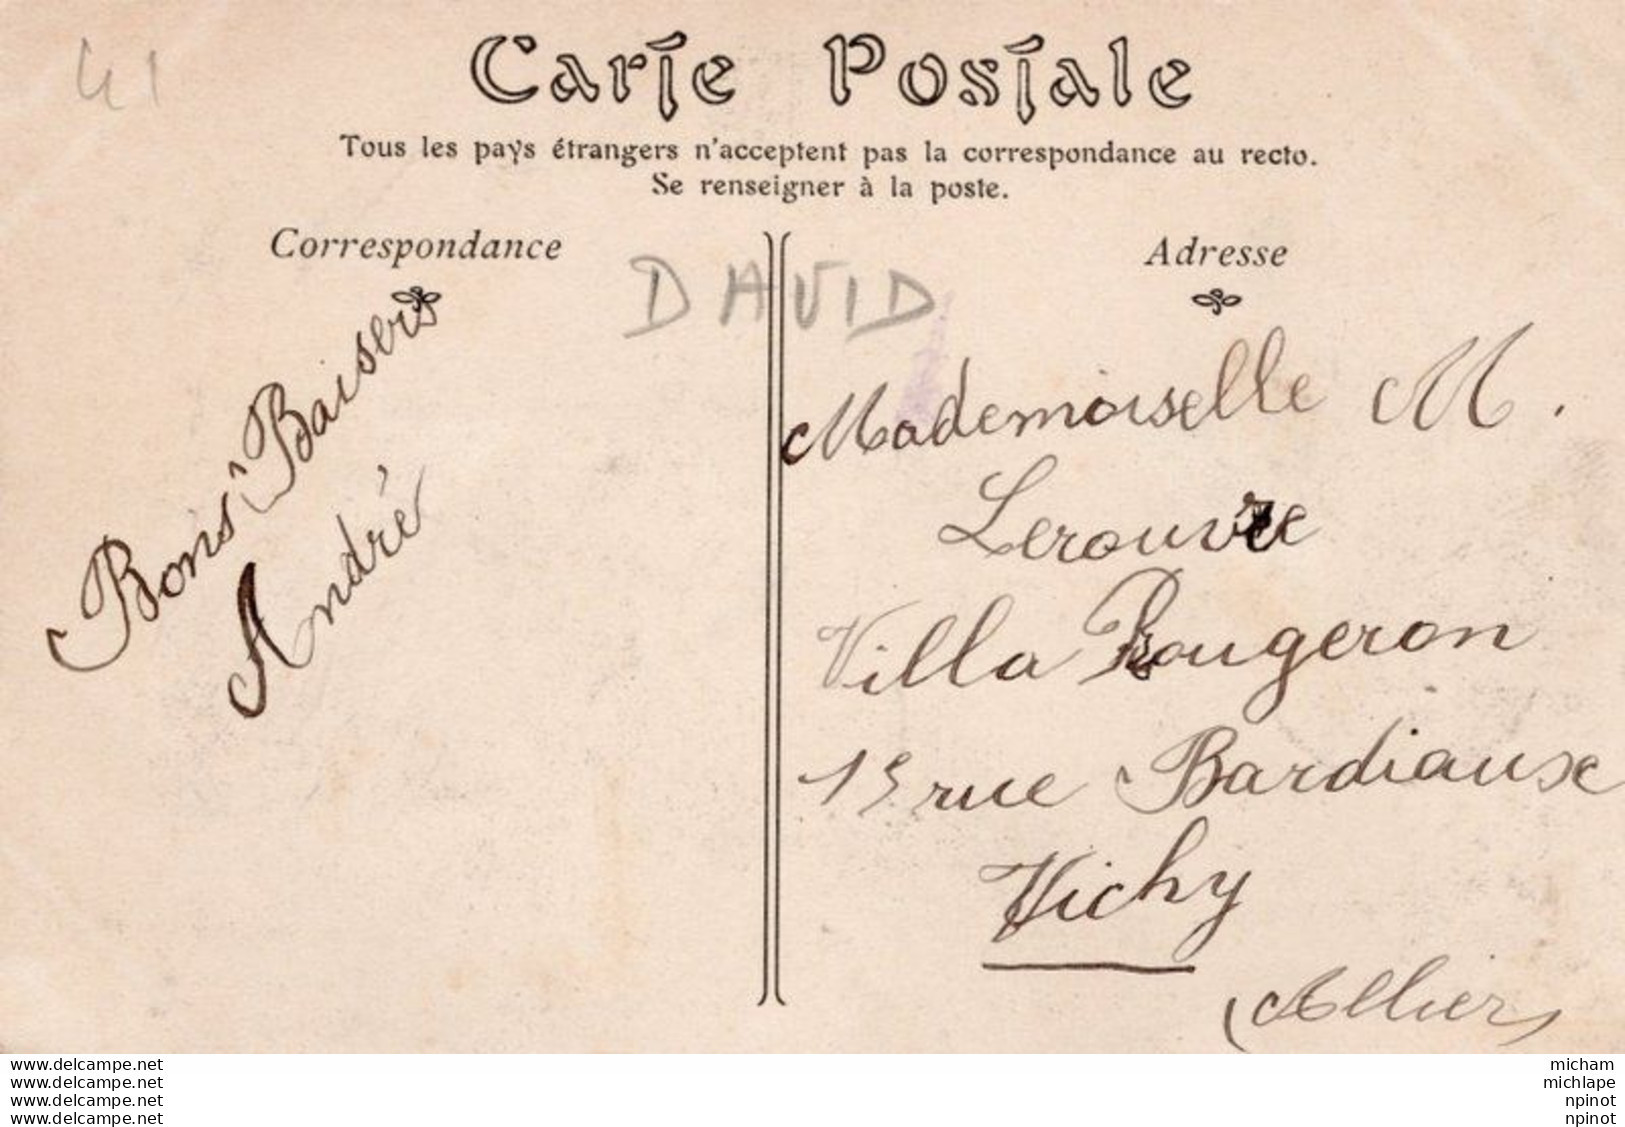 41
Carte Postale
Tous les pays étrangers n'acceptent pas la correspondance au recto.
Se renseigner à la poste.
Correspondance
Adresse
DAVID
Bons Baisers
André
Mademoiselle M.
Lerouvre
Villa Rougeron
13 rue Bardiaux
Vichy
(Allier)
www.delcampe.net
www.delcampe.net
www.delcampe.net
www.delcampe.net
micham
michlape
npinot
npinot